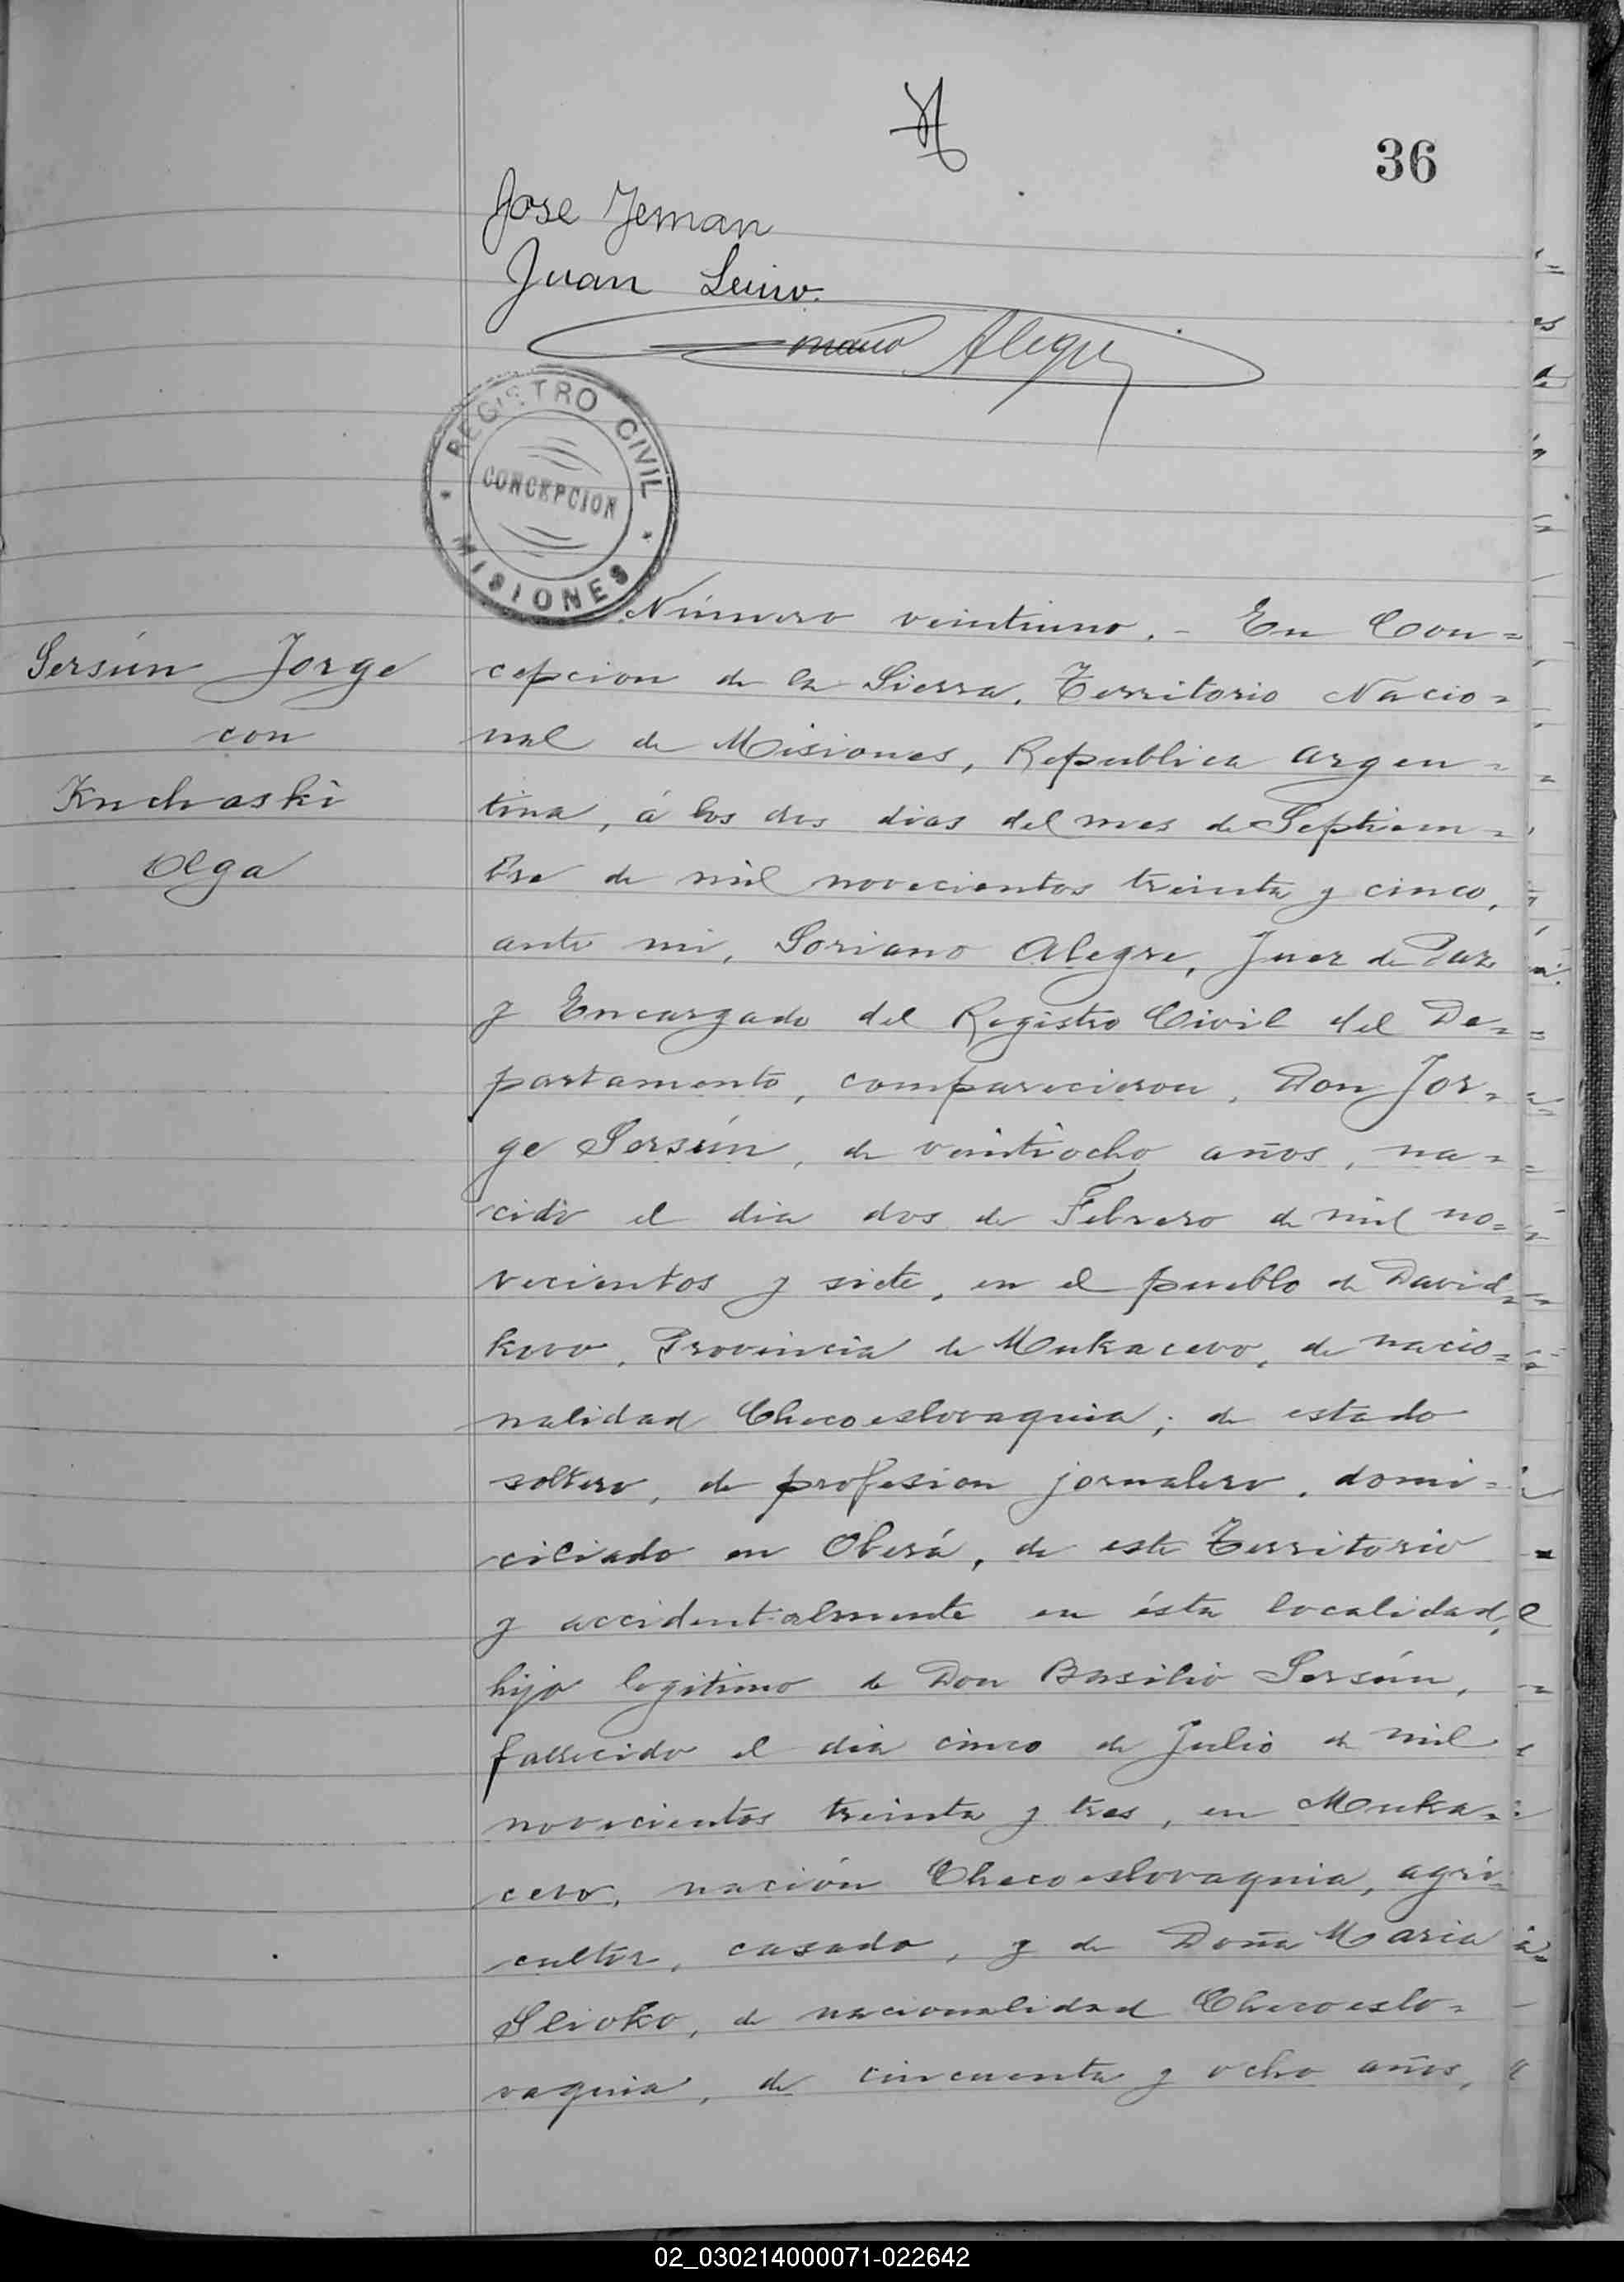 36
Jose Jeman
Juan
Alegre
REGISTRO CIVIL
CONCEPCION
MISIONES
Número veintiuno. - En Con=
Sersún Jorge
con
Kuchaski
Olga
cepcion de la Sierra, Territorio Nacio=
nal de Misiones, Republica Argen=
tina, á los dos dias del mes de Septiem=
bre de mil novecientos treinta y cinco,
ante mi, Soriano Alegre, Juez de Paz
y Encargado del Registro Civil del De=
partamento, comparecieron, Don Jor=
ge Sersún, de veintiocho años, na=
cido el dia dos de Febrero de mil no=
vecientos y siete, en el pueblo de David=
kovo, Provincia de Mukacevo, de nacio=
nalidad Checoeslovaquia; de estado
soltero, de profesion jornalero, domi=
ciliado en Oberá, de este Territorio
y accidentalmente en ésta localidad,
hijo legitimo de Don Basilio Sersún,
fallecido el dia cinco de Julio de mil
novecientos treinta y tres, en Muka=
cevo, nación Checoeslovaquia, agri=
cultor, casado, y de Doña Maria
Slivko, de nacionalidad Checoeslo=
vaquia, de cincuenta y ocho años,
02_030214000071-022642